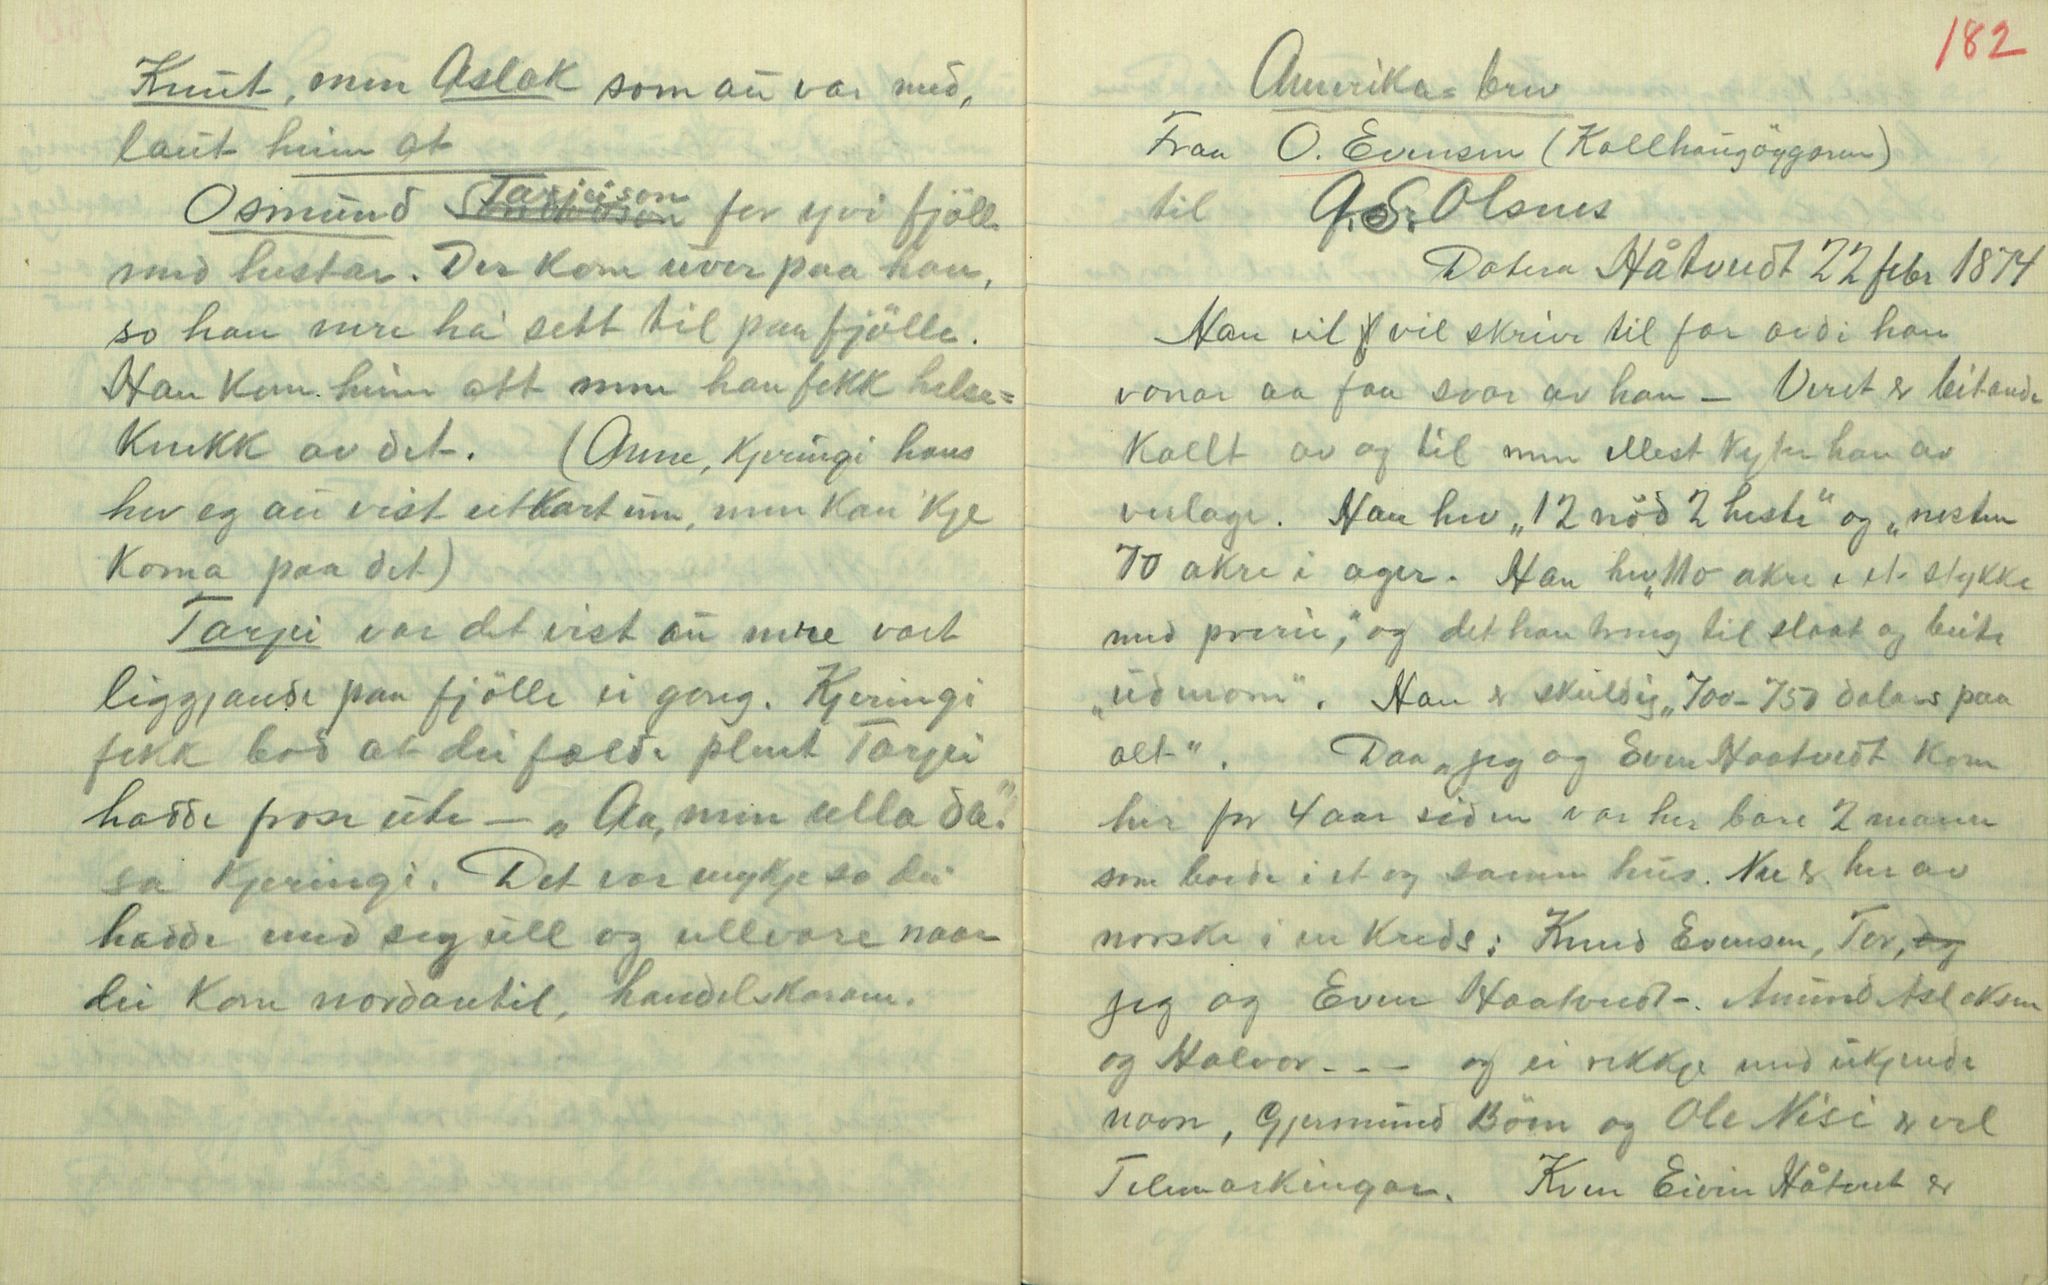 Knut, men Aslak som au var med,
laut heim at
Osmund Tarjeison for yvi fjölle
med hestar. Der kom uver paa han,
so han mre ha sett til paa fjölle.
Han kom heim att men han fekk helse=
knekk av det. (Anne, kjeringi hans
hev eg au vist eitkart um, men kan 'kje
koma paa det)
Tarjei var det vist au mre vart
liggjande paa fjölle ei gong. Kjeringi
fekk bod at dei fælde plent Tarjei
hadde frose ute — „Aa, min ulla då!"
sa kjeringi. Det var mykje so dei
hadde med seg ull og ullvare naar
dei kom nordantil, handelskarane.
182
Amerika= brev
Fraa O. Evensen (Kallhaugöygaren)
til G. S. Olsnes
Datera Håtvedt 22 febr 1874
Han vil vil skrive til far ardi han
vonar aa faa svar av han — Veret er beitande
kallt av og til men mest kyter han av
verlage. Han hev „12 nöd 2 heste" og „nesten
70 akre i ager. Han hev „110 akre i et stykke
med prærie," og det han treng til slaat og beite
„udenom". Han er skuldig „700-750 dalars paa
alt". Daa „jeg og Even Haatvedt kom
her for 4 aar siden var her bare 2 mann
som bodde i et og samme hus. Nu er her av
norske i en kreds: Knud Evensen, Tor, og
jeg og Even Haatvedt -. Amund Aslaksen
og Halvor - - - og ei rekkje med ukjende
navn, Gjermund Böen og Ole Nisi er vel
Telemarkingar. Kven Eivin Håtvet er